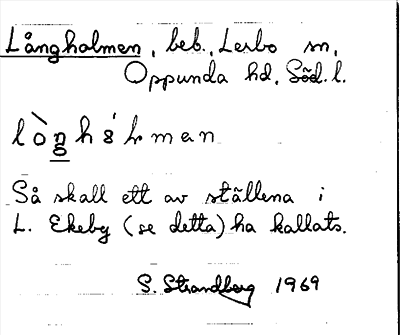 Långholmen, beb., Lerbo sn,
Oppunda hd, Söd. l.
lòngh8́lman
Så skall ett av ställena i
L. Ekeby (se detta) ha kallats.
S. Strandberg 1969